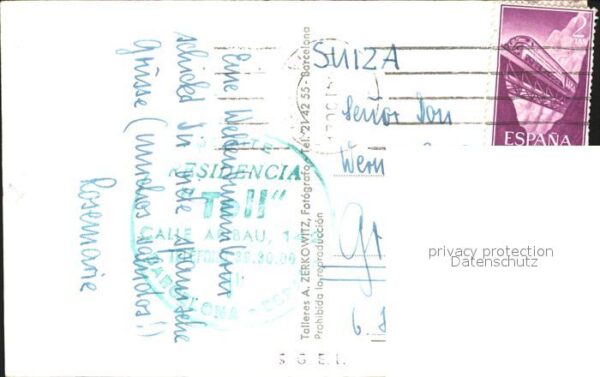 Eine Weltenbummlerin
schickt Dir viele spanische
Grüsse (muchos saludos!!)
Rosemarie
RESIDENCIA
"Tell"
CALLE ARIBAU, 1
BARCELONA
Talleres A. ZERKOWITZ, Fotógrafo - Tel. 21 42 55 - Barcelona
Prohibida la reproducción
SUIZA
Señor Don
Wern
2
PTAS
ESPAÑA
privacy protection
Datenschutz
S G E I.